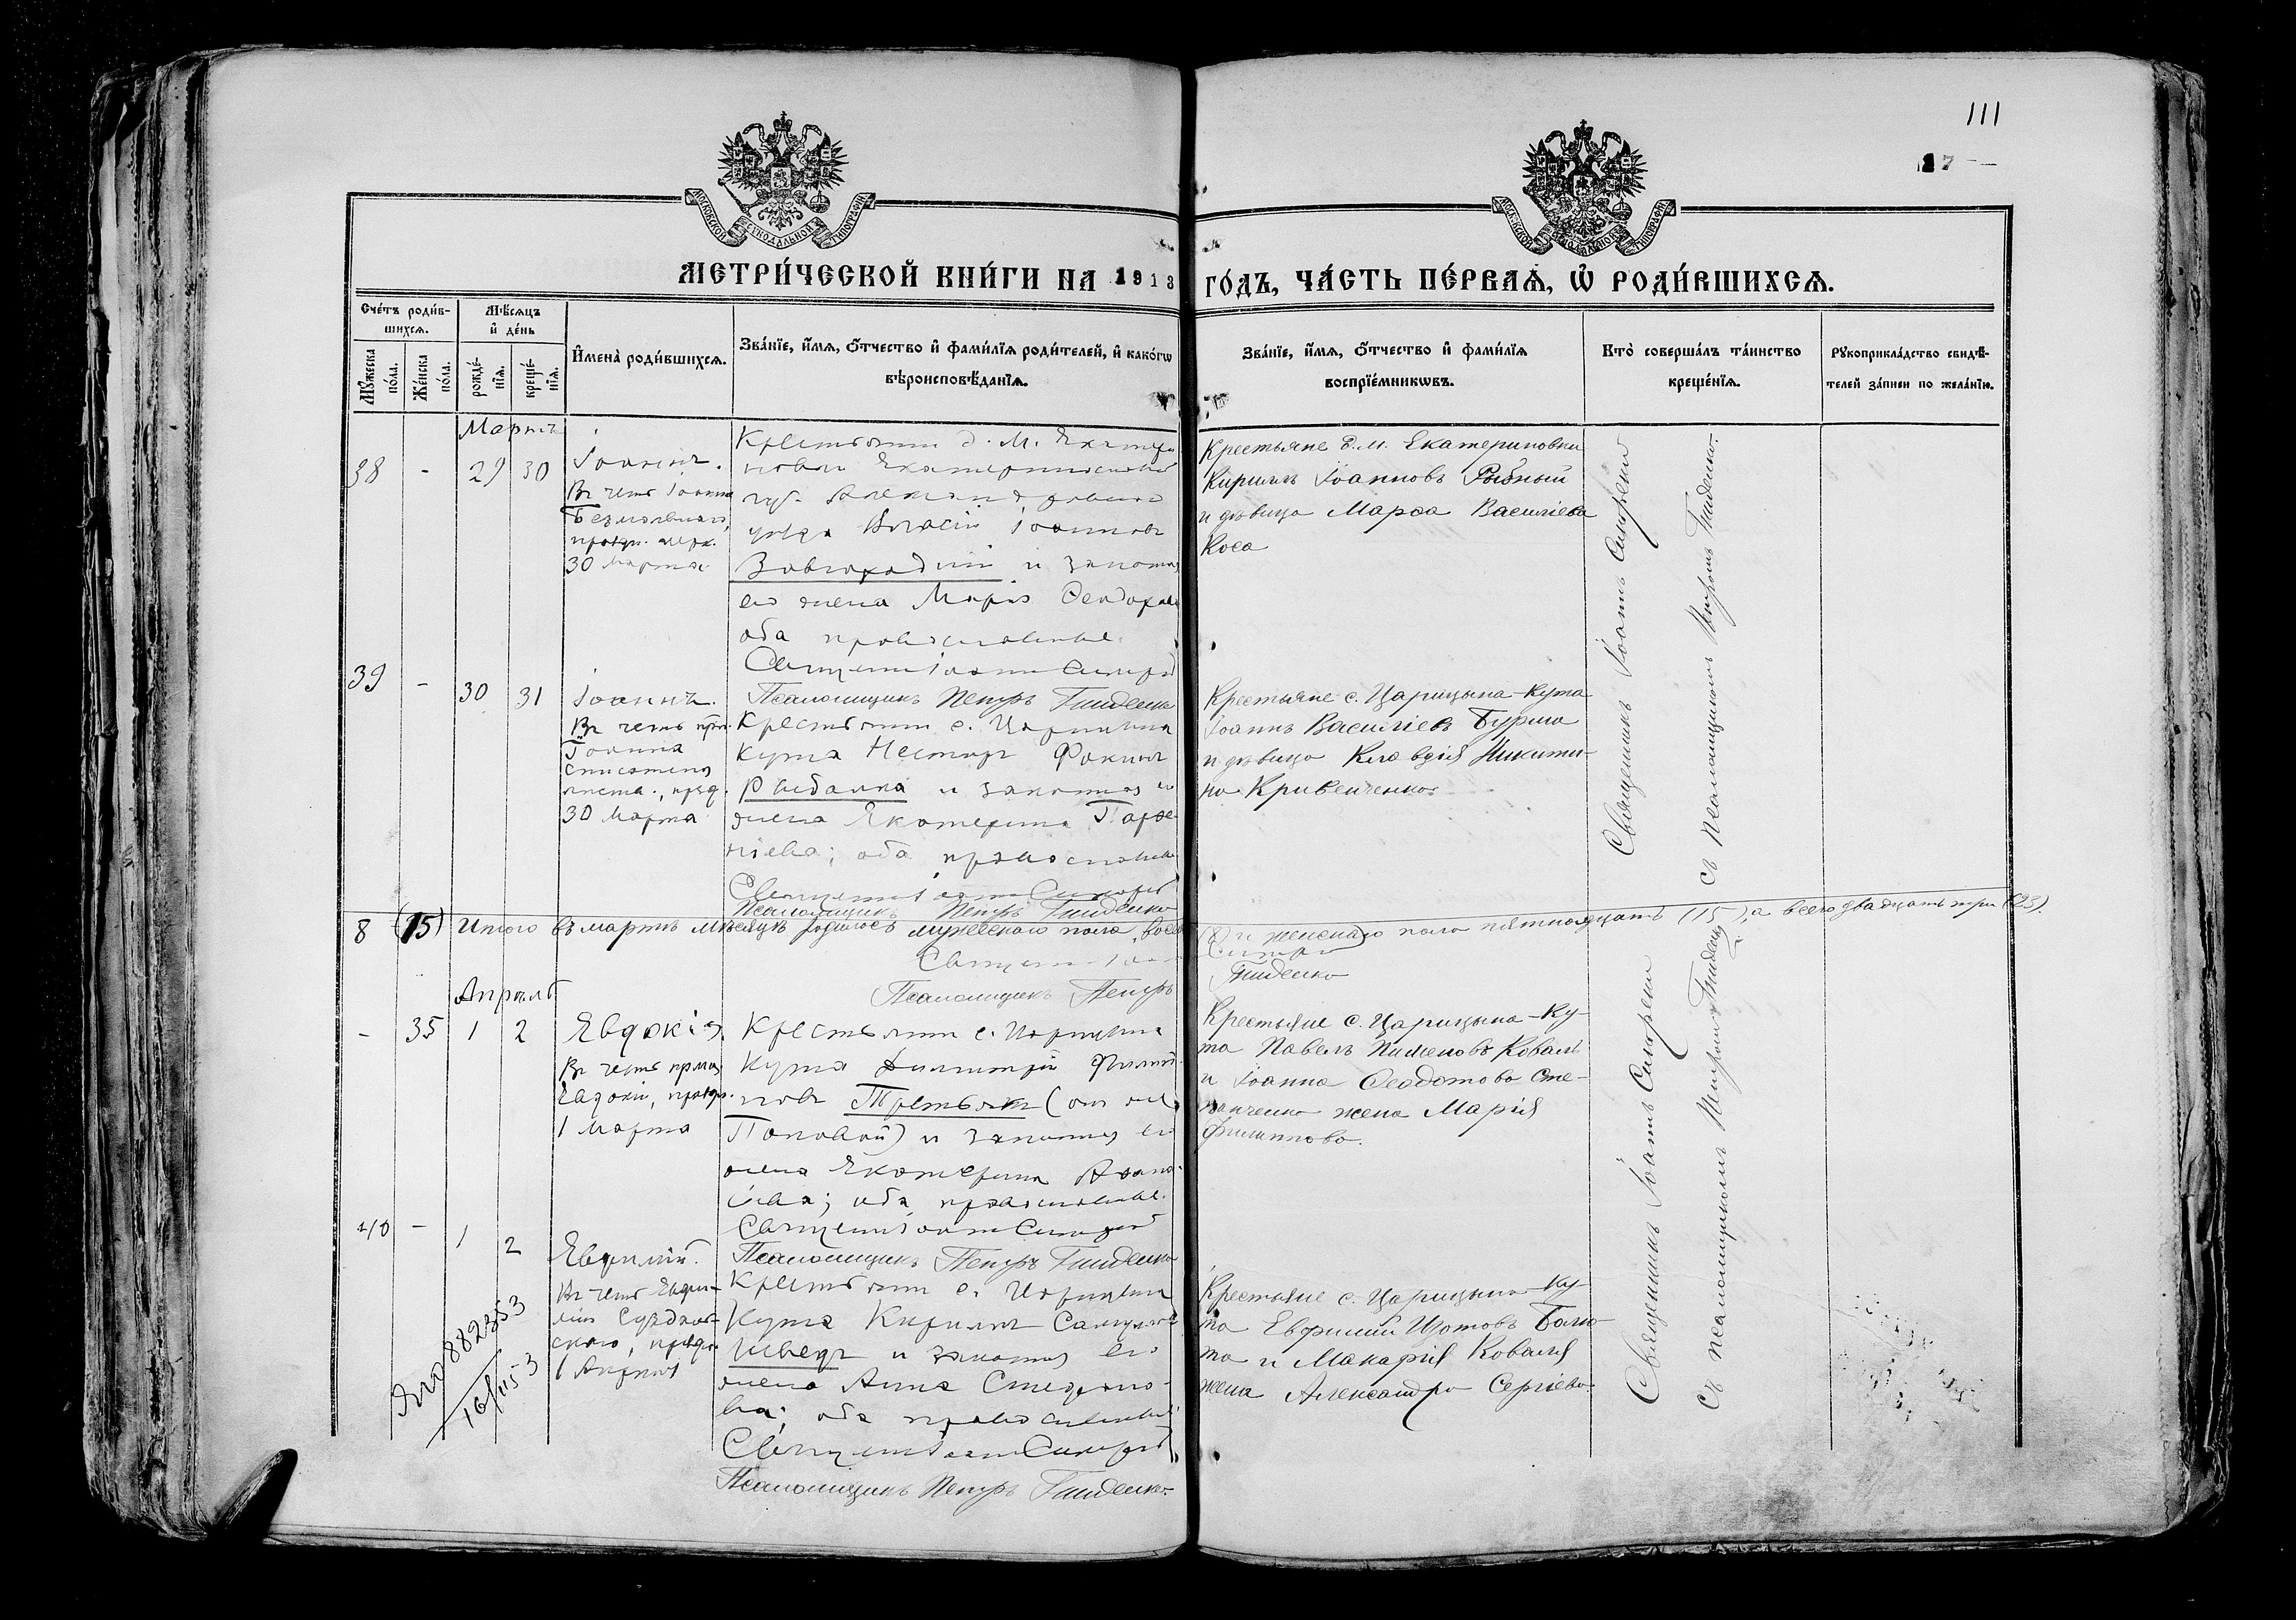 111
27
МОСКОВСКОЙ СѴНОДАЛЬНОЙ ТИПОГРАФІИ
МОСКОВСКОЙ СѴНОДАЛЬНОЙ ТИПОГРАФІИ
МЕТРИ́ЧЕСКОЙ КНИ́ГИ НА 1913 ГО́ДЪ, ЧА́СТЬ ПЕ́РВАѦ, Ѽ РОДИ́ВШИХСѦ.
Сче́тъ роди́в-
шихсѧ.
Мѣ́сѧцъ
и҆ де́нь
Мꙋ́жеска по́ла.
Же́нска по́ла.
рожде́-
нїѧ.
креще́-
нїѧ.
И҆мена̀ роди́вшихсѧ.
Зва́нїе, и҆́мѧ, ѻ҆́тчество и҆ фами́лїѧ роди́телей, и҆ како́гѡ
вѣроисповѣ́данїѧ.
Зва́нїе, и҆́мѧ, ѻ҆́тчество и҆ фами́лїѧ
воспрїе́мниковъ.
Кто̀ соверша́лъ та́инство
креще́нїѧ.
Рꙋкоприкла́дство свидѣ́-
телей за́писи по жела́нїю.
Мартъ
38 - 29 30
Іоаннъ.
Въ честь Іоанна
Безмолвнаго,
праздн. церк.
30 Марта
Крестьянинъ д. М. Екатери
новки Екатеринославской
губ. Александровскаго
уѣзда Власій Іоанновъ
Завгородній и законная
его жена Марія Ѳеодорова
оба православные.
Священникъ Іоаннъ
Псаломщикъ Петръ
Крестьяне д. М. Екатериновки
Кириллъ Іоанновъ Рыбный
и дѣвица Марѳа Василіева
Коса
39 - 30 31
Іоаннъ.
Въ честь прп.
Іоанна
списателя
лѣств., празд.
30 Марта
Крестьянинъ с. Царицына
Кута Несторъ Фокинъ
Рыбалка и законная его
жена Екатерина Парѳе
ніева; оба православные
Священникъ Іоаннъ
Псаломщикъ Петръ
Крестьяне с. Царицына-Кута
Іоаннъ Василіевъ Бурма
и дѣвица Клавдія Никити-
на Кривенченко
Священникъ Іоаннъ
съ псаломщикомъ Петромъ
8 (15) Итого въ мартѣ мѣсяцѣ родилось мужескаго пола восемь (8) и женскаго пола пятнадцать (15), а всего двадцать три (23).
Священникъ Іоаннъ
Псаломщикъ Петръ
Апрѣль
- 35 1 2
Евдокія.
Въ честь прмц.
Евдокіи, праздн.
1 Марта
Крестьянинъ с. Царицына
Кута Димитрій Филип
повъ Третьякъ (онъ же
Поповой) и законная его
жена Екатерина Аѳана-
сіева; оба православные.
Священникъ Іоаннъ
Псаломщикъ Петръ
Крестьяне с. Царицына-Ку-
та Павелъ Пименовъ Коваль
и Іоанна Ѳеодотова Сте-
панченко жена Марія
Филиппова.
40 - 1 2
Евфимій.
Въ честь Евфи-
мія Суздаль-
скаго, праздн.
1 Апрѣля
Крестьянинъ с. Царицына
Кута Кириллъ
Шведъ и законная его
жена Анна Стефано-
ва; оба православные
Священникъ Іоаннъ
Псаломщикъ Петръ
Крестьяне с. Царицына-Ку-
та Евфимій
и Макарія Коваля
жена Александра Сергіева
Священникъ Іоаннъ
съ псаломщикомъ Петромъ
882353